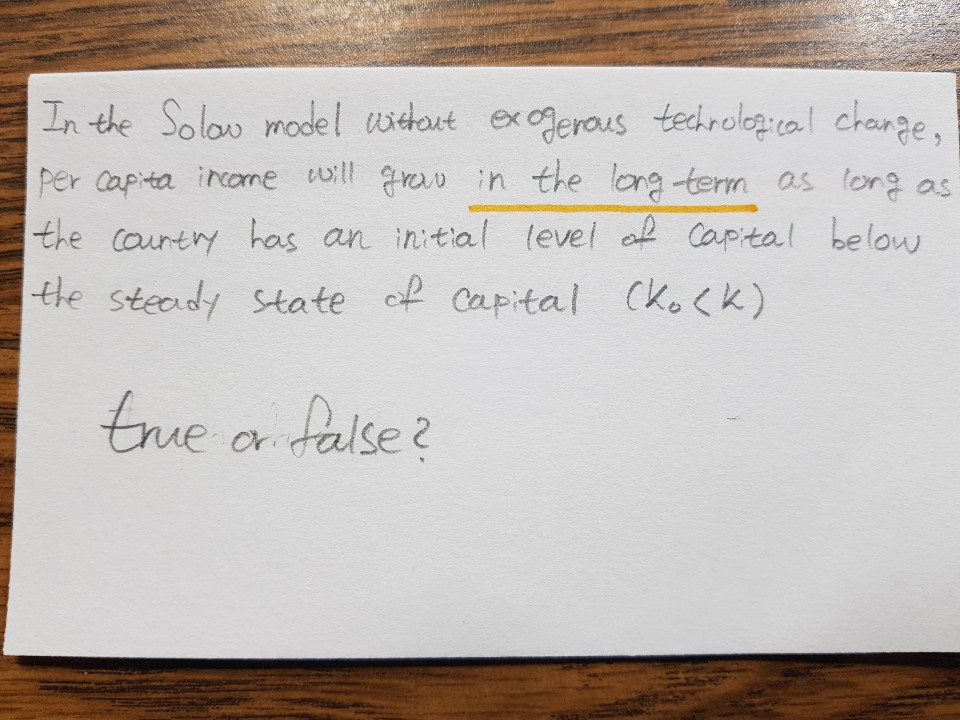 In the Solow model without exogenous technological change,
per capita income will grow in the long-term as long as
the country has an initial level of capital below
the steady state of capital (K₀<K)
true or false?